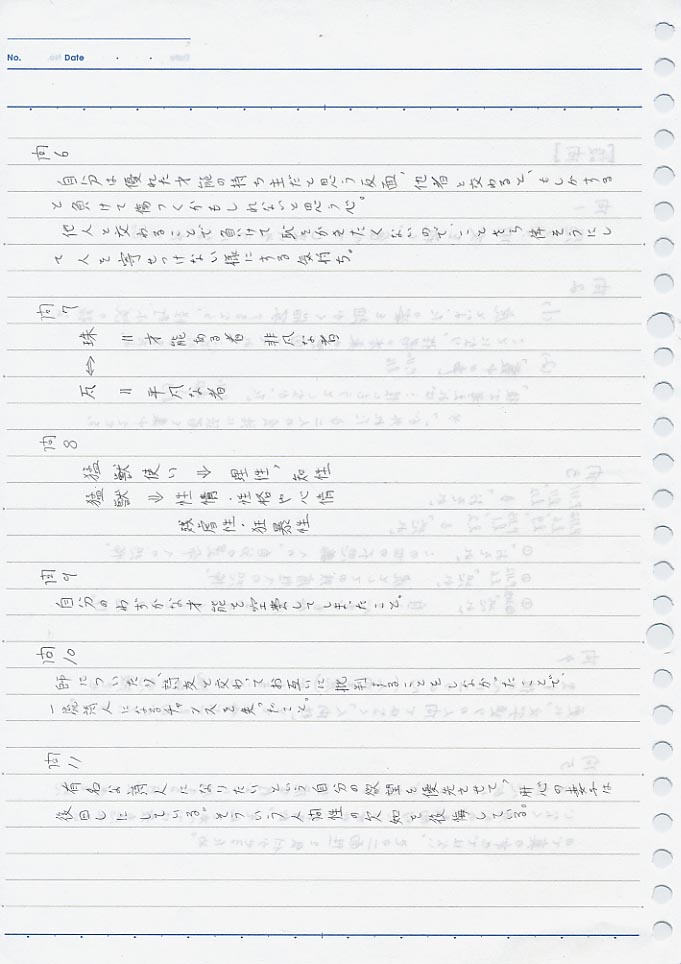 No. Date
問6
自分は優れた才能の持ち主だと思う反面、他者と交わると、もしかする
と負けて傷つくかもしれないと思う心。
他人と交わることで負けて恥をかきたくないので、ことさら偉そうにし
て人を寄せつけない様にする気持ち。
問7
珠 = 才能ある者 非凡な者
⇔
瓦 = 平凡な者
問8
猛獣使い ⇒ 理性, 知性
猛獣 ⇒ 性情・性格や心情
残虐性・狂暴性
問9
自分のわずかな才能を空費してしまったこと。
問10
師についたり、詩友と交わってお互いに批判することもしなかったことで、
一流詩人になるチャンスを失ったこと。
問11
有名な詩人になりたいという自分の欲望を優先させて、肝心の妻子は
後回しにしている。そういう人間性の欠如を後悔している。